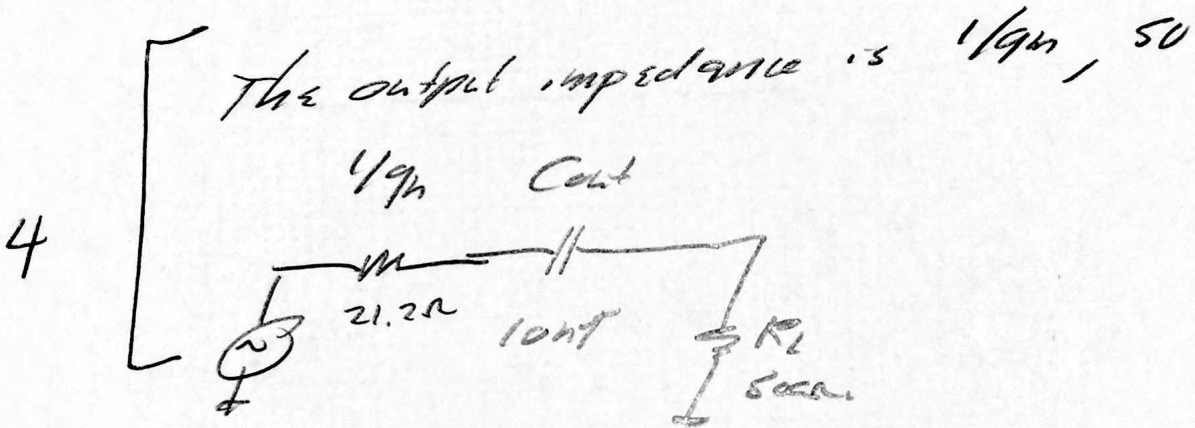 The output impedance is 1/gm, so
1/gm Cout
4
21.2Ω 10nF RL
500Ω